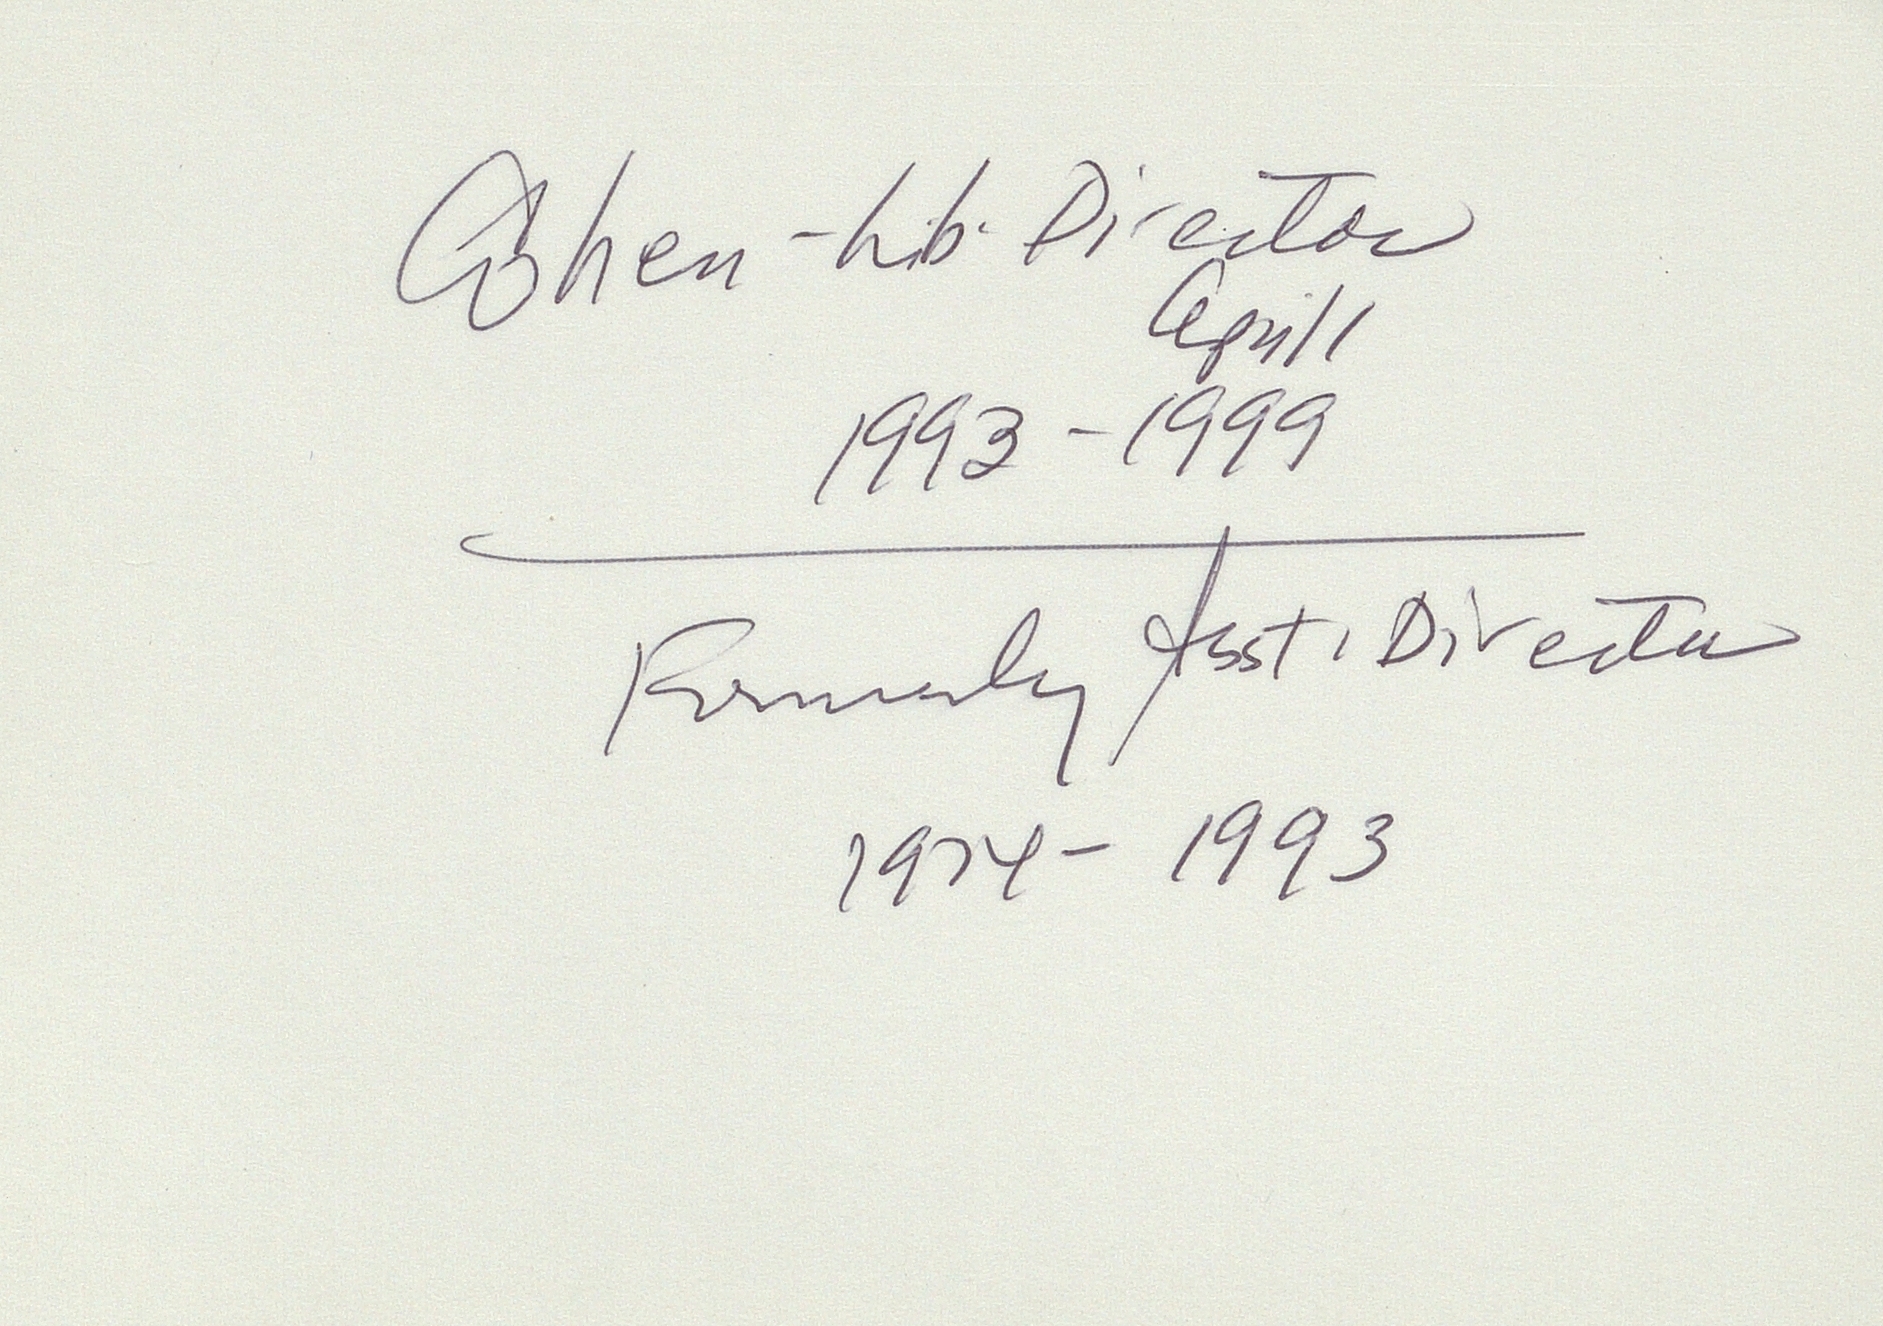 Cohen - Lib. Director
April 1
1993 - 1999
Formerly Asst. Director
1974 - 1993